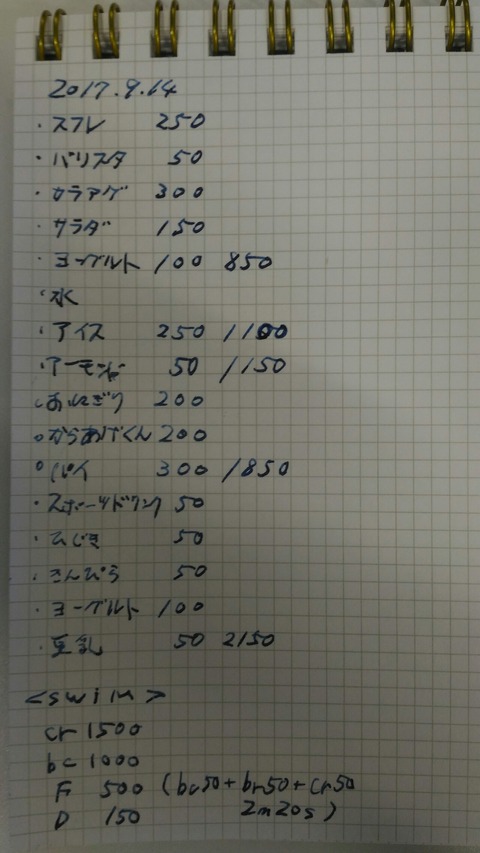 2017.9.14
・スフレ 250
・バリスタ 50
・カラアゲ 300
・サラダ 150
・ヨーグルト 100 850
・水
・アイス 250 1100
・アーモンド 50 1150
○おにぎり 200
○からあげくん 200
○パイ 300 1850
・スポーツドリンク 50
・ひじき 50
・きんぴら 50
・ヨーグルト 100
・豆乳 50 2150
<swim>
cr 1500
bc 1000
F 500 (bc50+br50+cr50
D 150 2m20s)